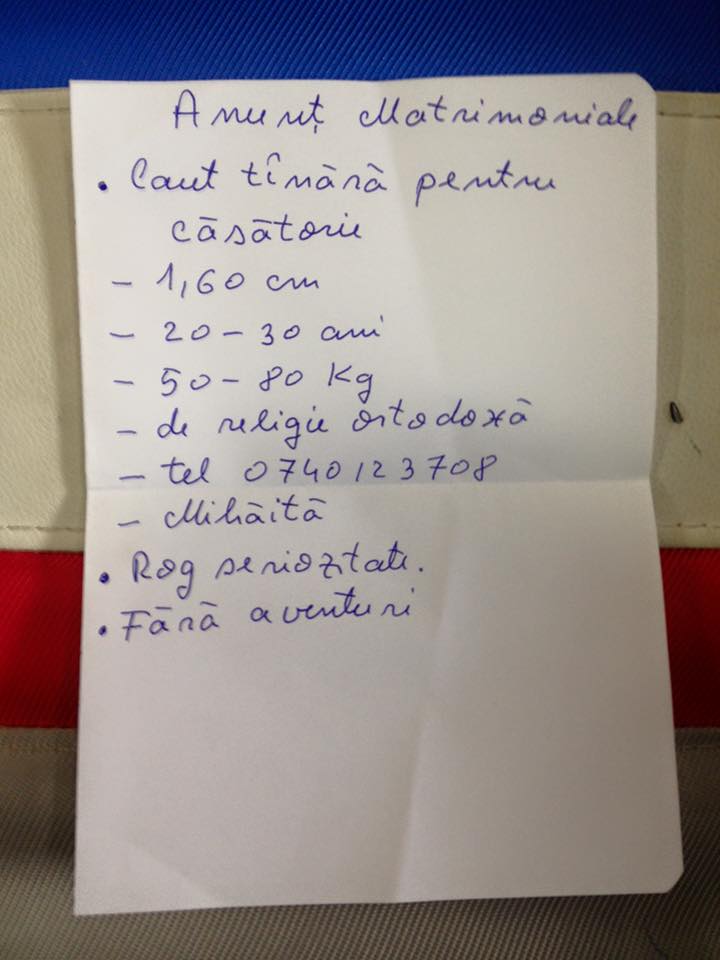 Anunț Matrimoniale
• Caut tînără pentru
căsătorie
- 1,60 cm
- 20-30 ani
- 50-80 Kg
- de religie ortodoxă
- tel 0740123708
- Mihăită
• Rog seriozitate.
• Fără aventuri